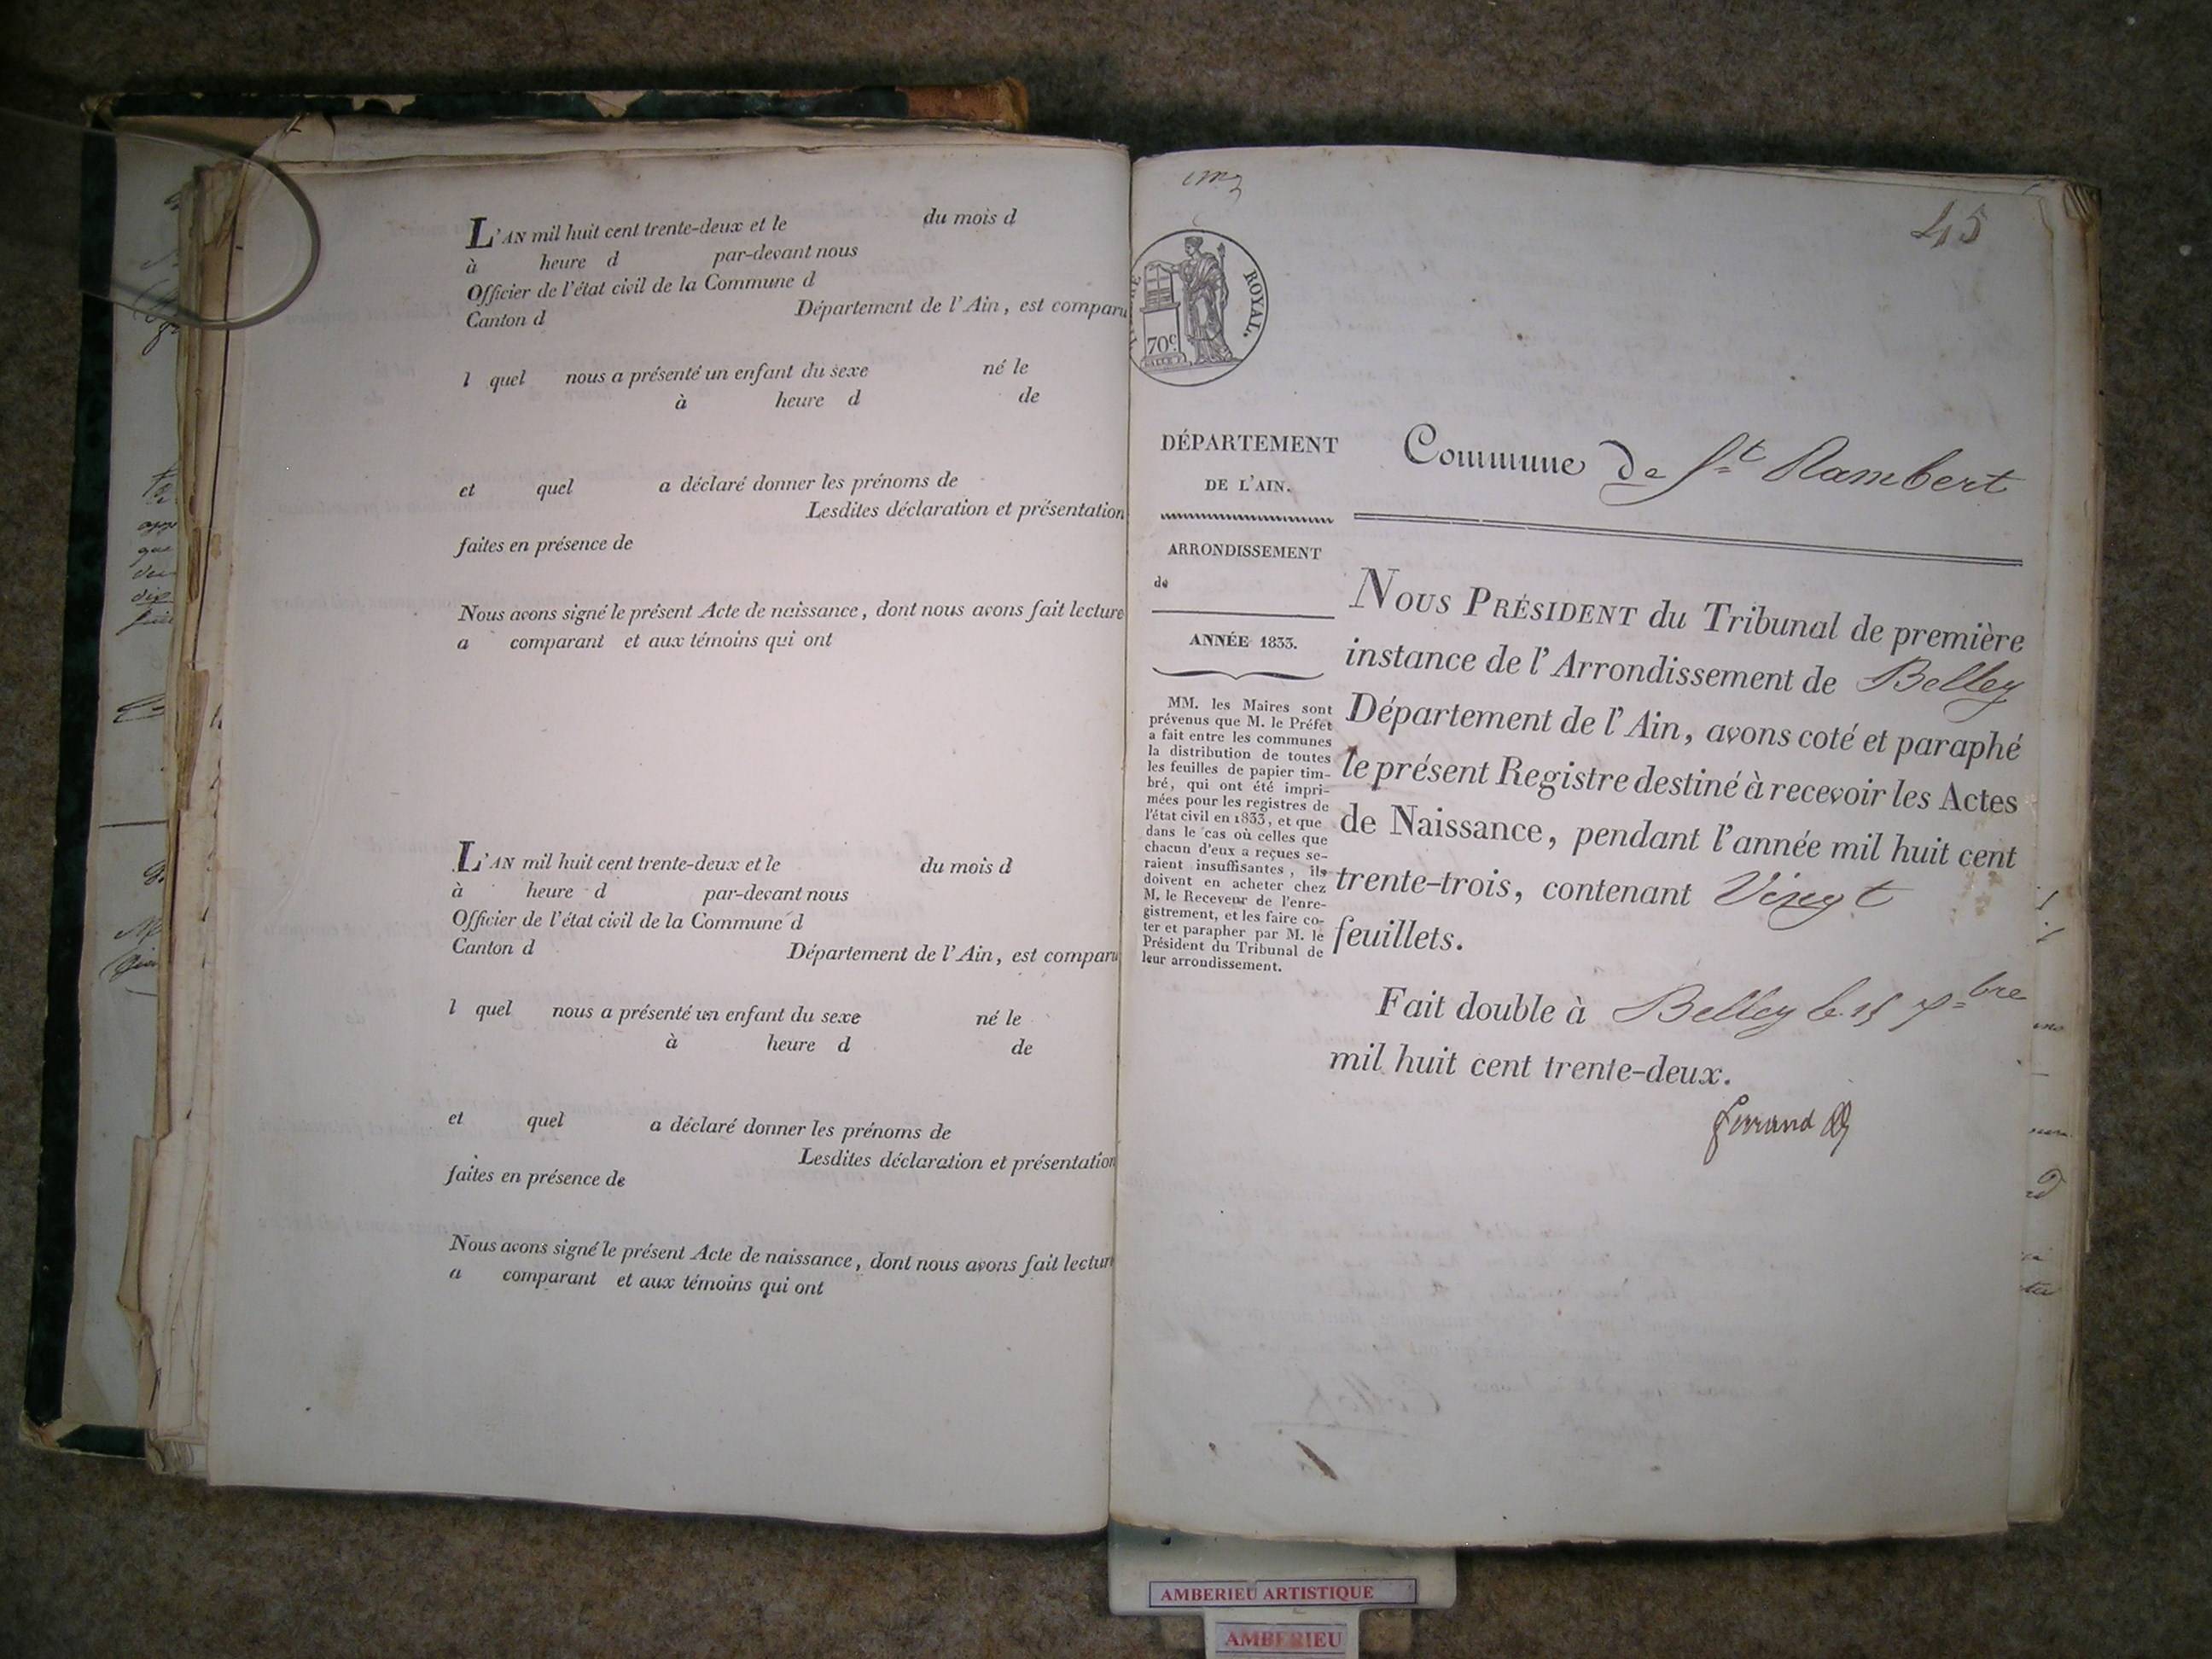 L'AN mil huit cent trente-deux et le du mois d
à heure d par-devant nous
Officier de l'état civil de la Commune d
Canton d Département de l'Ain, est comparu
l quel nous a présenté un enfant du sexe né le
à heure d de
et quel a déclaré donner les prénoms de
Lesdites déclaration et présentation
faites en présence de
Nous avons signé le présent Acte de naissance, dont nous avons fait lecture
a comparant et aux témoins qui ont
L'AN mil huit cent trente-deux et le du mois d
à heure d par-devant nous
Officier de l'état civil de la Commune d
Canton d Département de l'Ain, est comparu
l quel nous a présenté un enfant du sexe né le
à heure d de
et quel a déclaré donner les prénoms de
Lesdites déclaration et présentation
faites en présence de
Nous avons signé le présent Acte de naissance, dont nous avons fait lectur
a comparant et aux témoins qui ont
45
ROYAL.
70c
DÉPARTEMENT
DE L'AIN.
ARRONDISSEMENT
de
ANNÉE 1833.
MM. les Maires sont
prévenus que M. le Préfet
a fait entre les communes
la distribution de toutes
les feuilles de papier tim-
bré, qui ont été impri-
mées pour les registres de
l'état civil en 1833, et que
dans le cas où celles que
chacun d'eux a reçues se-
raient insuffisantes, ils
doivent en acheter chez
M. le Receveur de l'enre-
gistrement, et les faire co-
ter et parapher par M. le
Président du Tribunal de
leur arrondissement.
Commune de St Rambert
NOUS PRÉSIDENT du Tribunal de première
instance de l'Arrondissement de Belley
Département de l'Ain, avons coté et paraphé
le présent Registre destiné à recevoir les Actes
de Naissance, pendant l'année mil huit cent
trente-trois, contenant Vingt
feuillets.
Fait double à Belley le 15 7bre
mil huit cent trente-deux.
Ferrand
AMBERIEU ARTISTIQUE
AMBERIEU